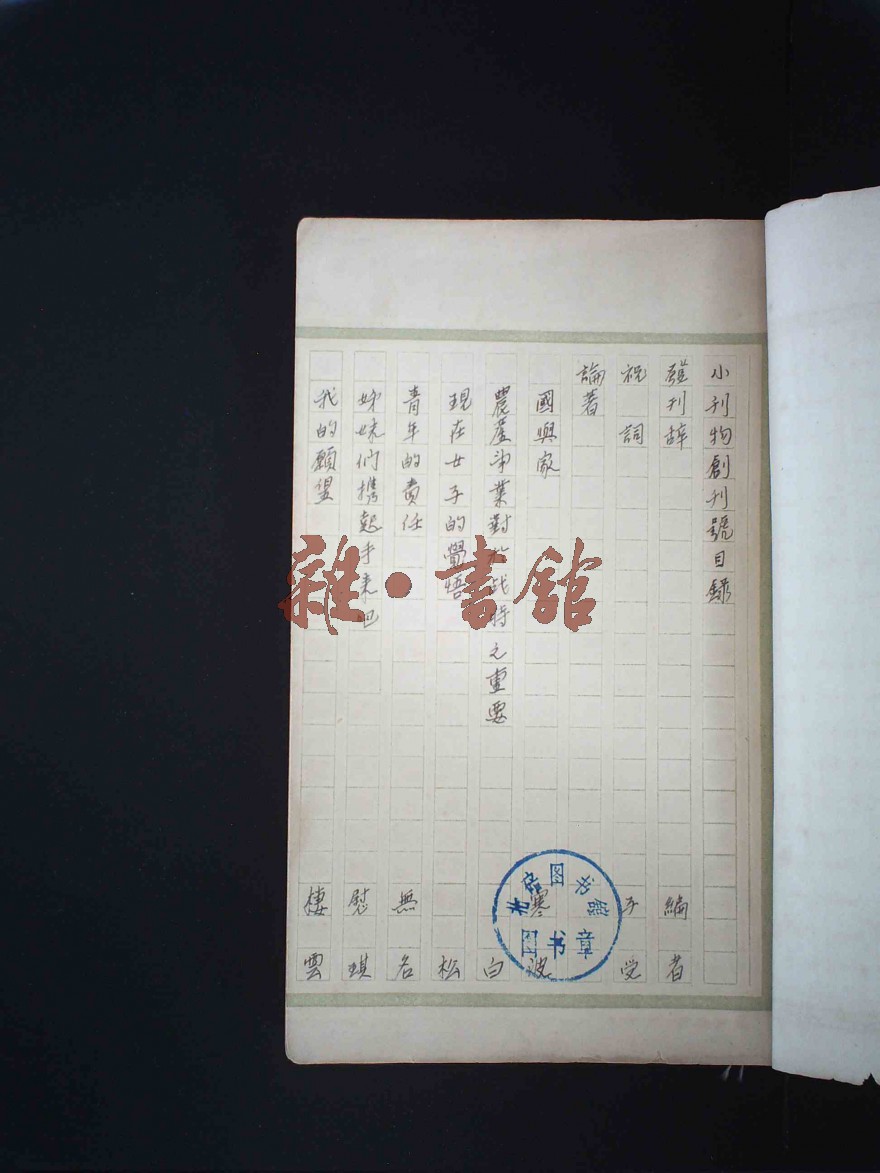 小刊物創刊號目録
發刊辭 編者
祝詞 子受
論著
國與家 寒波
農產事業對於战時之重要 白
現在女子的覺悟 松
青年的責任 無名
姊妹們携起手來吧 慰琪
我的願望 棲雲
雜·書館
图书馆
图书章